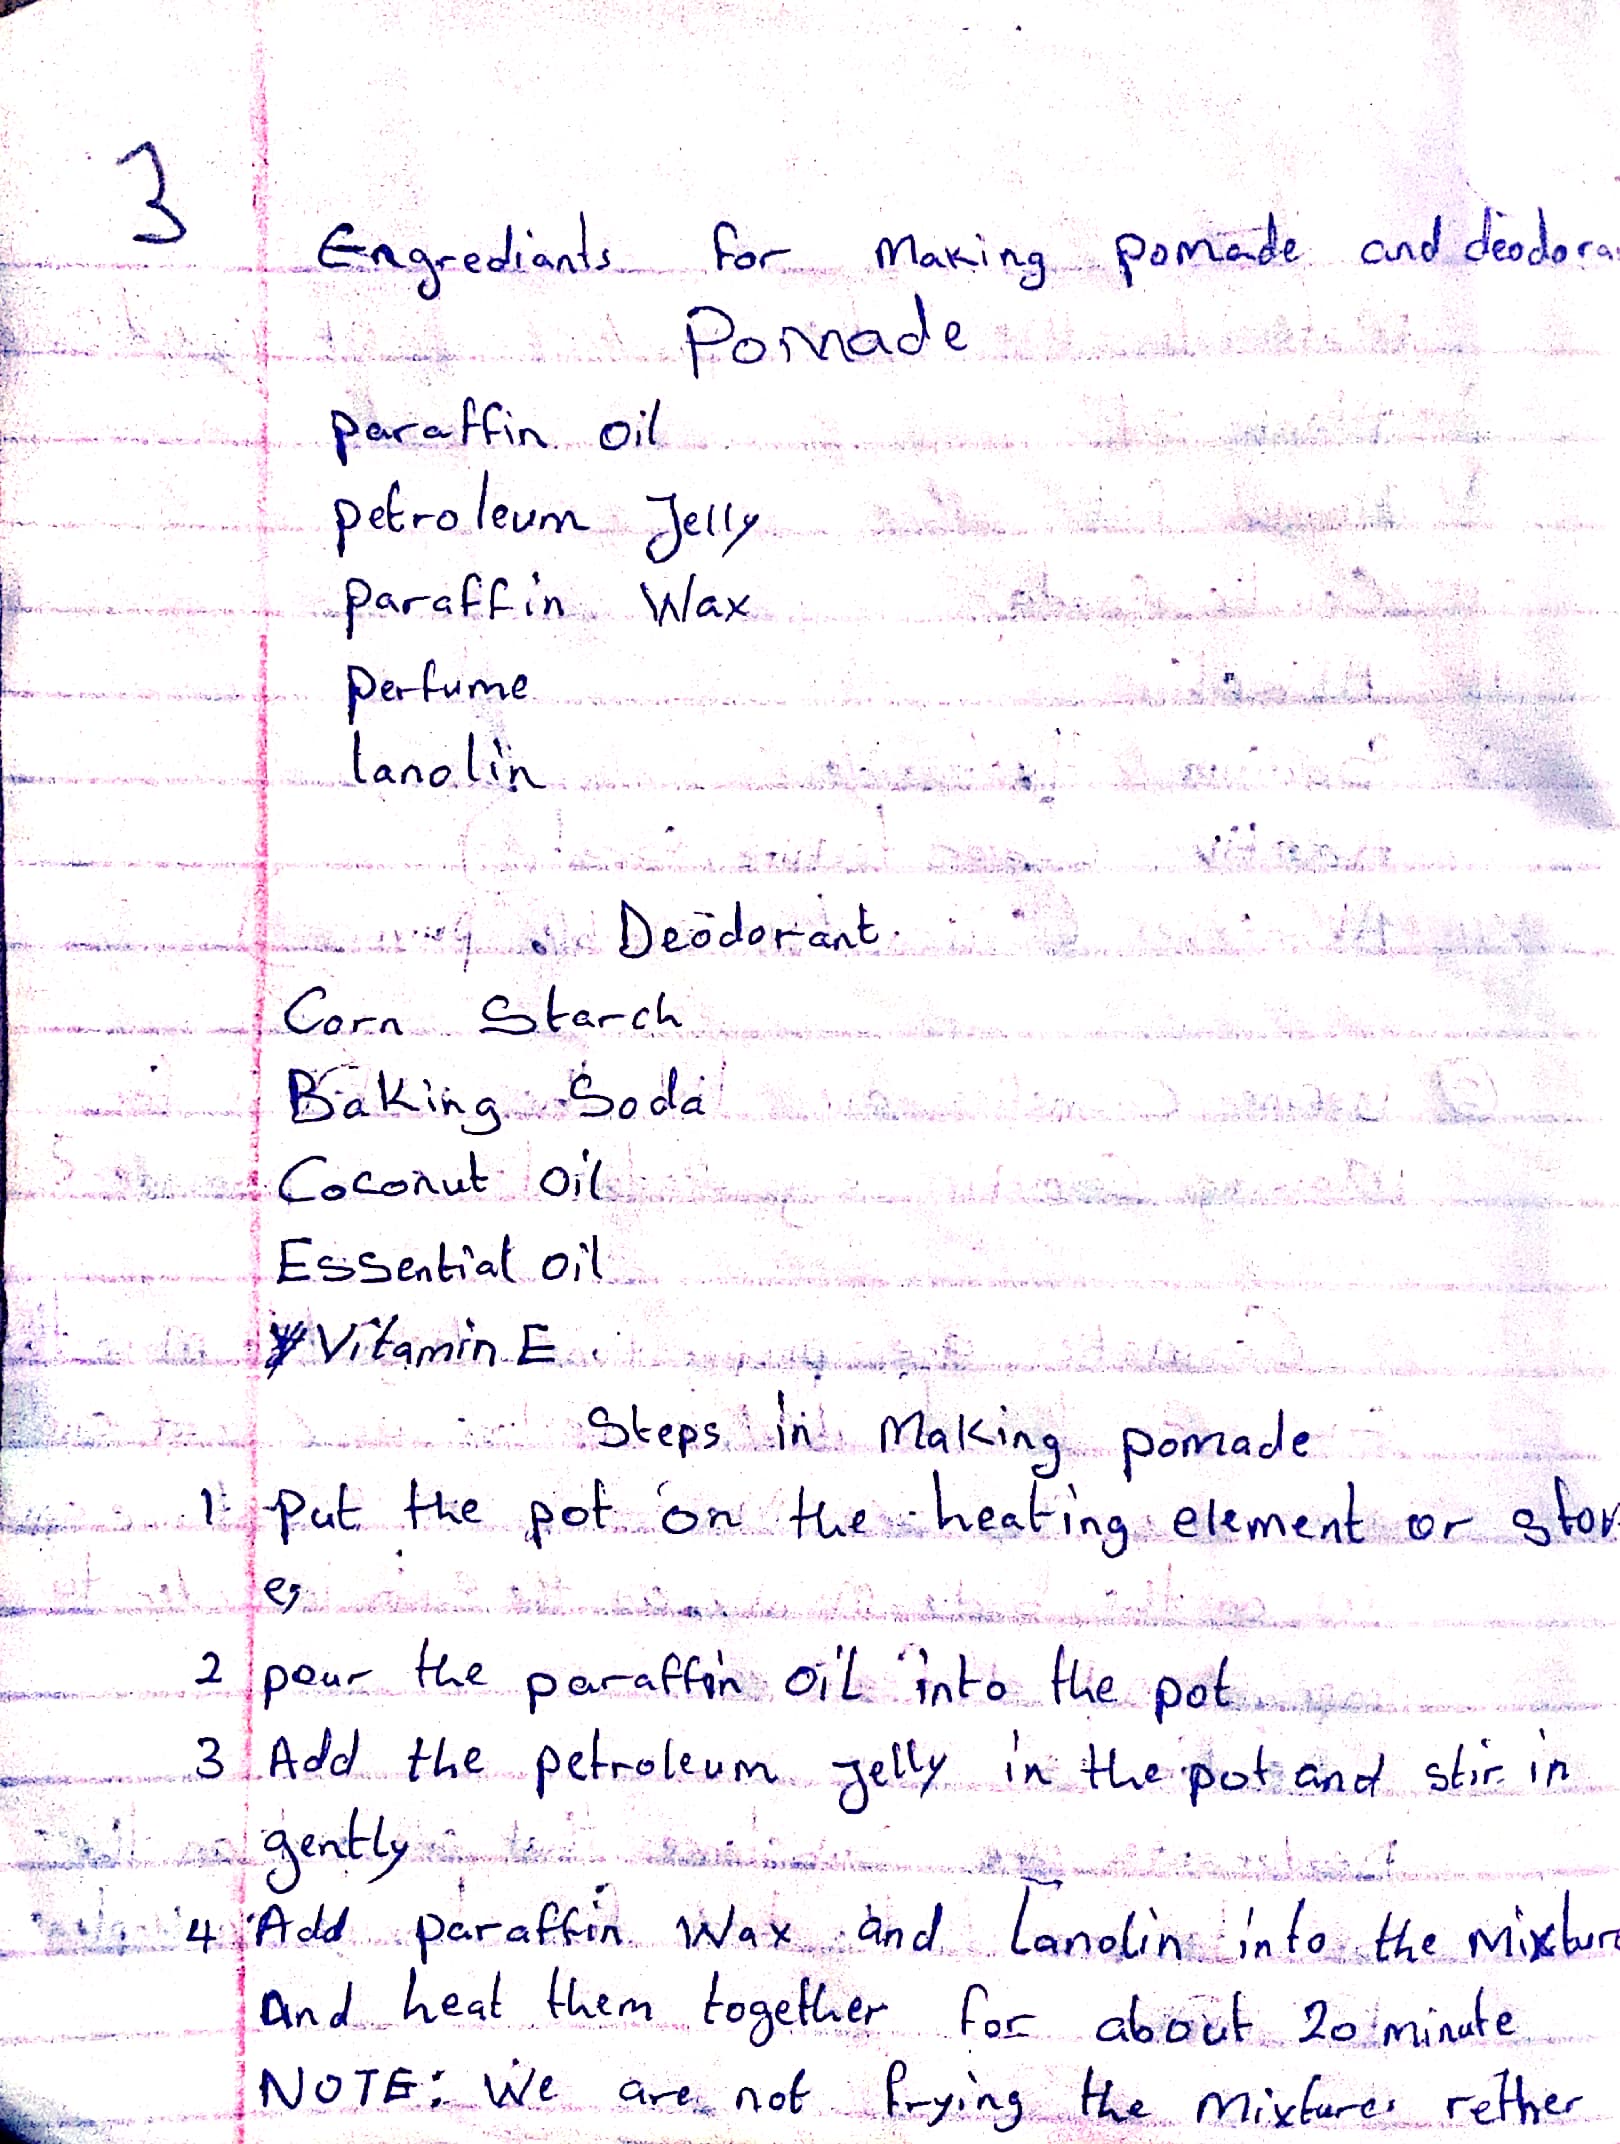 3
Engrediants for Making pomade and deodora
Pomade
paraffin oil
petroleum Jelly
paraffin Wax
perfume
lanolin
Deodorant.
Corn Starch
Baking Soda
Coconut oil
Essential oil
Vitamin E.
Steps in Making pomade
1 Put the pot on the heating element or stov
e,
2 pour the paraffin oil into the pot
3 Add the petroleum jelly in the pot and stir in
gently
4 Add paraffin Wax and Lanolin into the Mixture
And heat them together for about 20 minute
NOTE: We are not frying the Mixture. rether